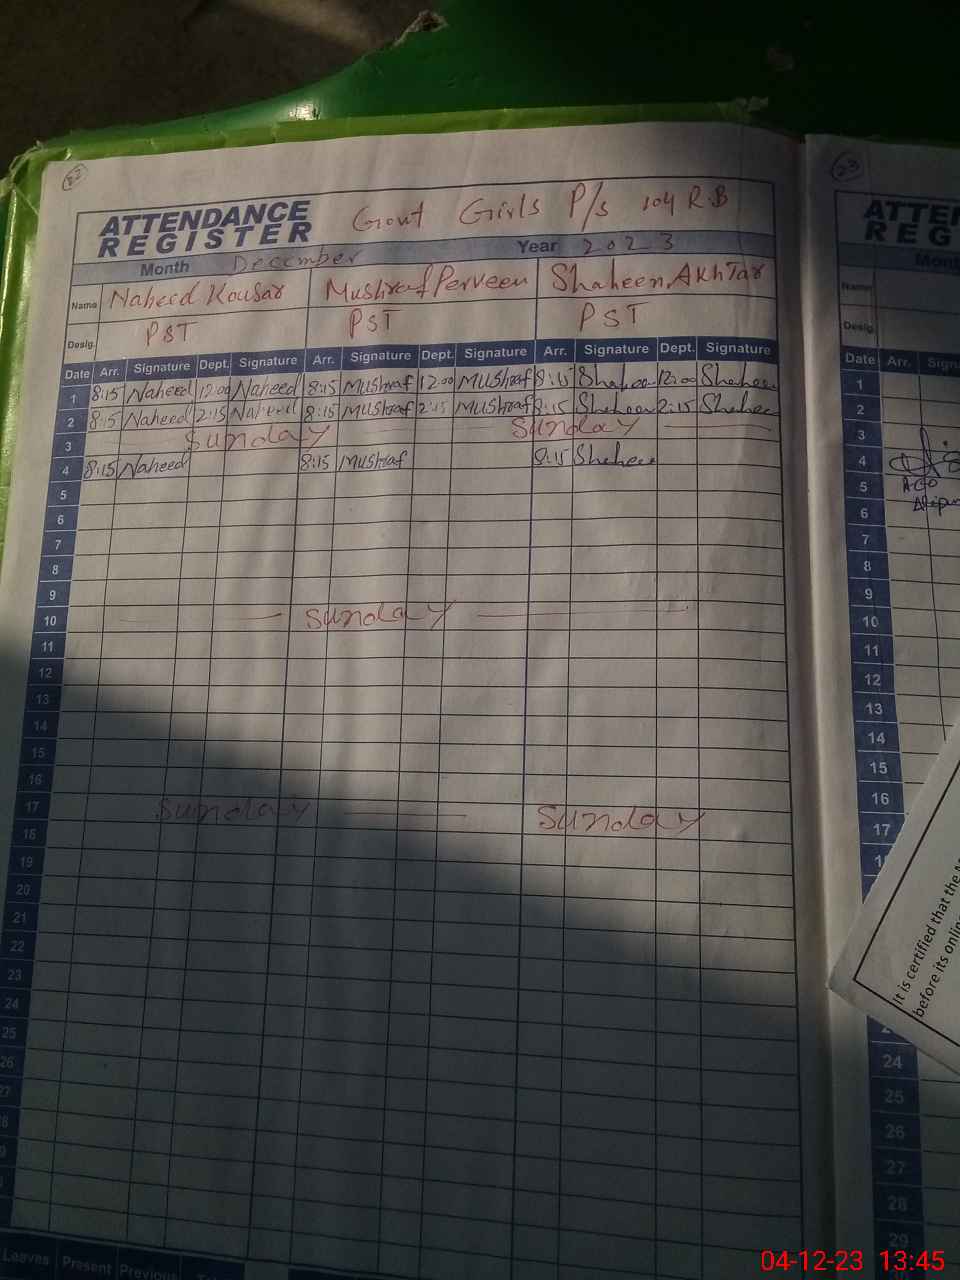 22
ATTENDANCE Govt Girls P/s 104 R.B
REGISTER
Month December Year 2023
Name Naheed Kousar Mushraf Perveen Shaheen Akhtar
Desig. PST PST PST
Date Arr. Signature Dept. Signature Arr. Signature Dept. Signature Arr. Signature Dept. Signature
1 8:15 Naheed 12:00 Naheed 8:15 Mushraf 12:00 Mushraf 8:15 Shaheen 12:00 Shaheen
2 8:15 Naheed 2:15 Naheed 8:15 Mushraf 2:15 Mushraf 8:15 Shaheen 2:15 Shaheen
3 Sunday Sunday
4 8:15 Naheed 8:15 Mushraf 8:15 Shaheen
5
6
7
8
9
10 Sunday
11
12
13
14
15
16
17 Sunday Sunday
18
19
20
21
22
23
24
25
26
27
Leaves Present Previous
23
ATTEN
REG
Month
Name
Desig.
Date Arr. Signa
1
2
3
4
5 AEO
6
7
8
9
10
11
12
13
14
15
16
17
It is certified that the
before its onlin
24
25
26
27
28
29
04-12-23 13:45